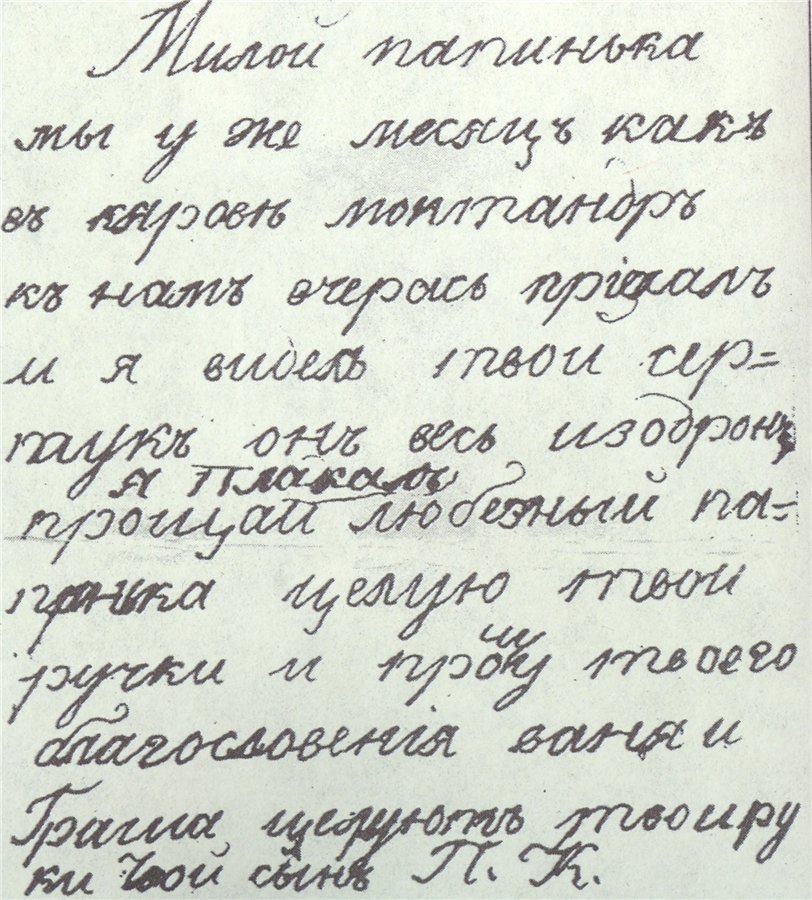 Милой папинька
мы у же месяцъ какъ
въ кяровѣ монтандръ
къ намъ вчерась пріехалъ
и я виделъ твои сер=
таукъ онъ весь изодронъ
я плакалъ
прощай любезный па=
пинька целую твои
ручки и прошу твоего
благословенія ваня и
Граша целуютъ твои ру
ки твой сынъ П. К.